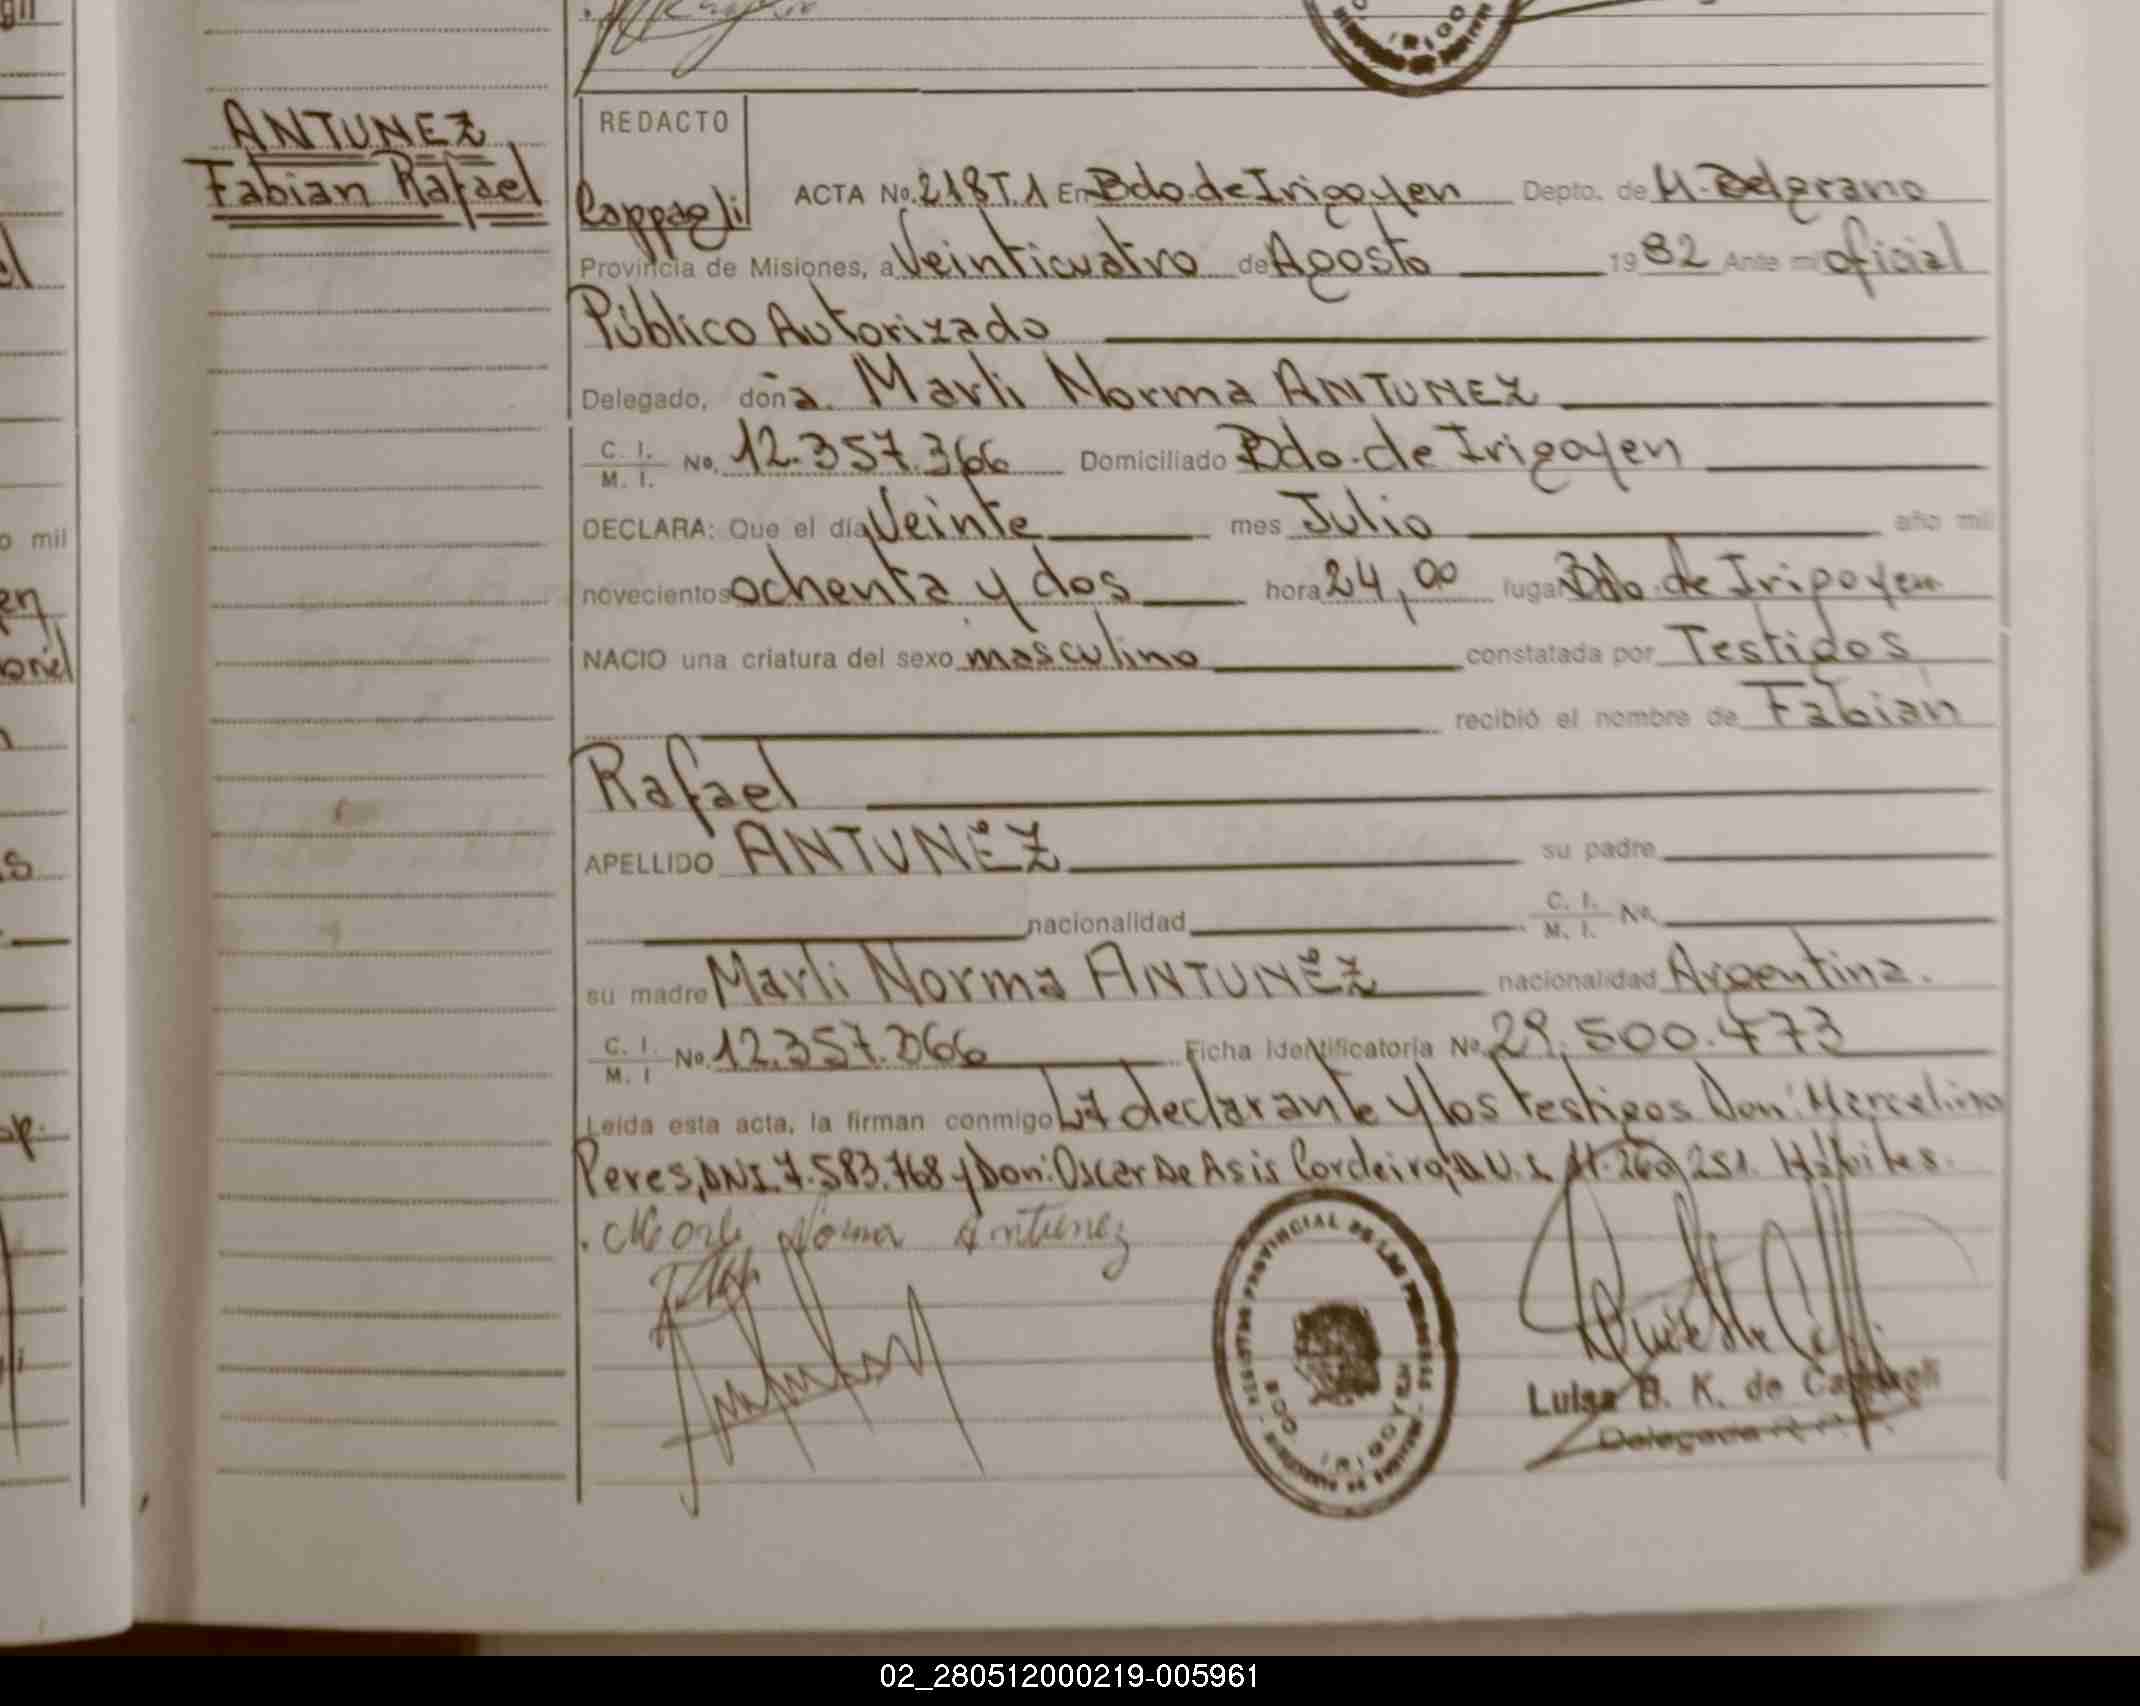 ANTUNEZ
Fabian Rafael
REDACTO
Cappagli
ACTA No. 218 T.1 En Bdo. de Irigoyen Depto. de M. Belgrano
Provincia de Misiones, a Veinticuatro de Agosto 1982 Ante mi oficial
Público Autorizado
Delegado, doña. Marli Norma ANTUNEZ
C. I. / M. I. No. 12.357.366 Domiciliado Bdo. de Irigoyen
DECLARA: Que el día Veinte mes Julio año mil
novecientos ochenta y dos hora 24,00 lugar Bdo. de Irigoyen
NACIO una criatura del sexo masculino constatada por Testigos
recibió el nombre de Fabian
Rafael
APELLIDO ANTUNEZ su padre
nacionalidad C. I. / M. I. No.
su madre Marli Norma ANTUNEZ nacionalidad Argentina.
C. I. / M. I No. 12.357.366 Ficha Identificatoria No. 29.500.473
Leída esta acta, la firman conmigo La declarante y los testigos Don: Marcelino
Peres, DNI. 7.583.768 y Don: Oscar De Asis Cordeiro, Hábiles.
Marli Norma Antunez
REGISTRO PROVINCIAL DE LAS PERSONAS
BDO. IRIGOYEN
Luisa B. K. de Cappagli
Delegada
02_280512000219-005961